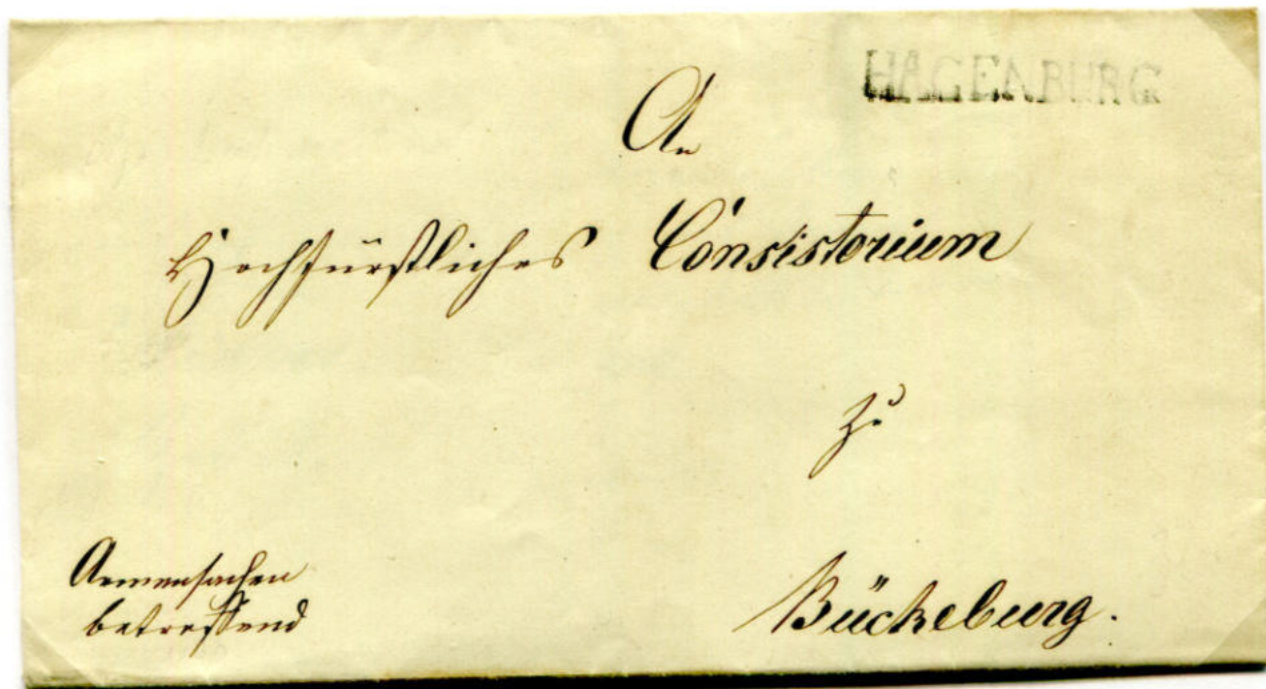 HAGENBURG
An
Hochfürstliches Consistorium
zu
Bückeburg.
Armensachen
betreffend